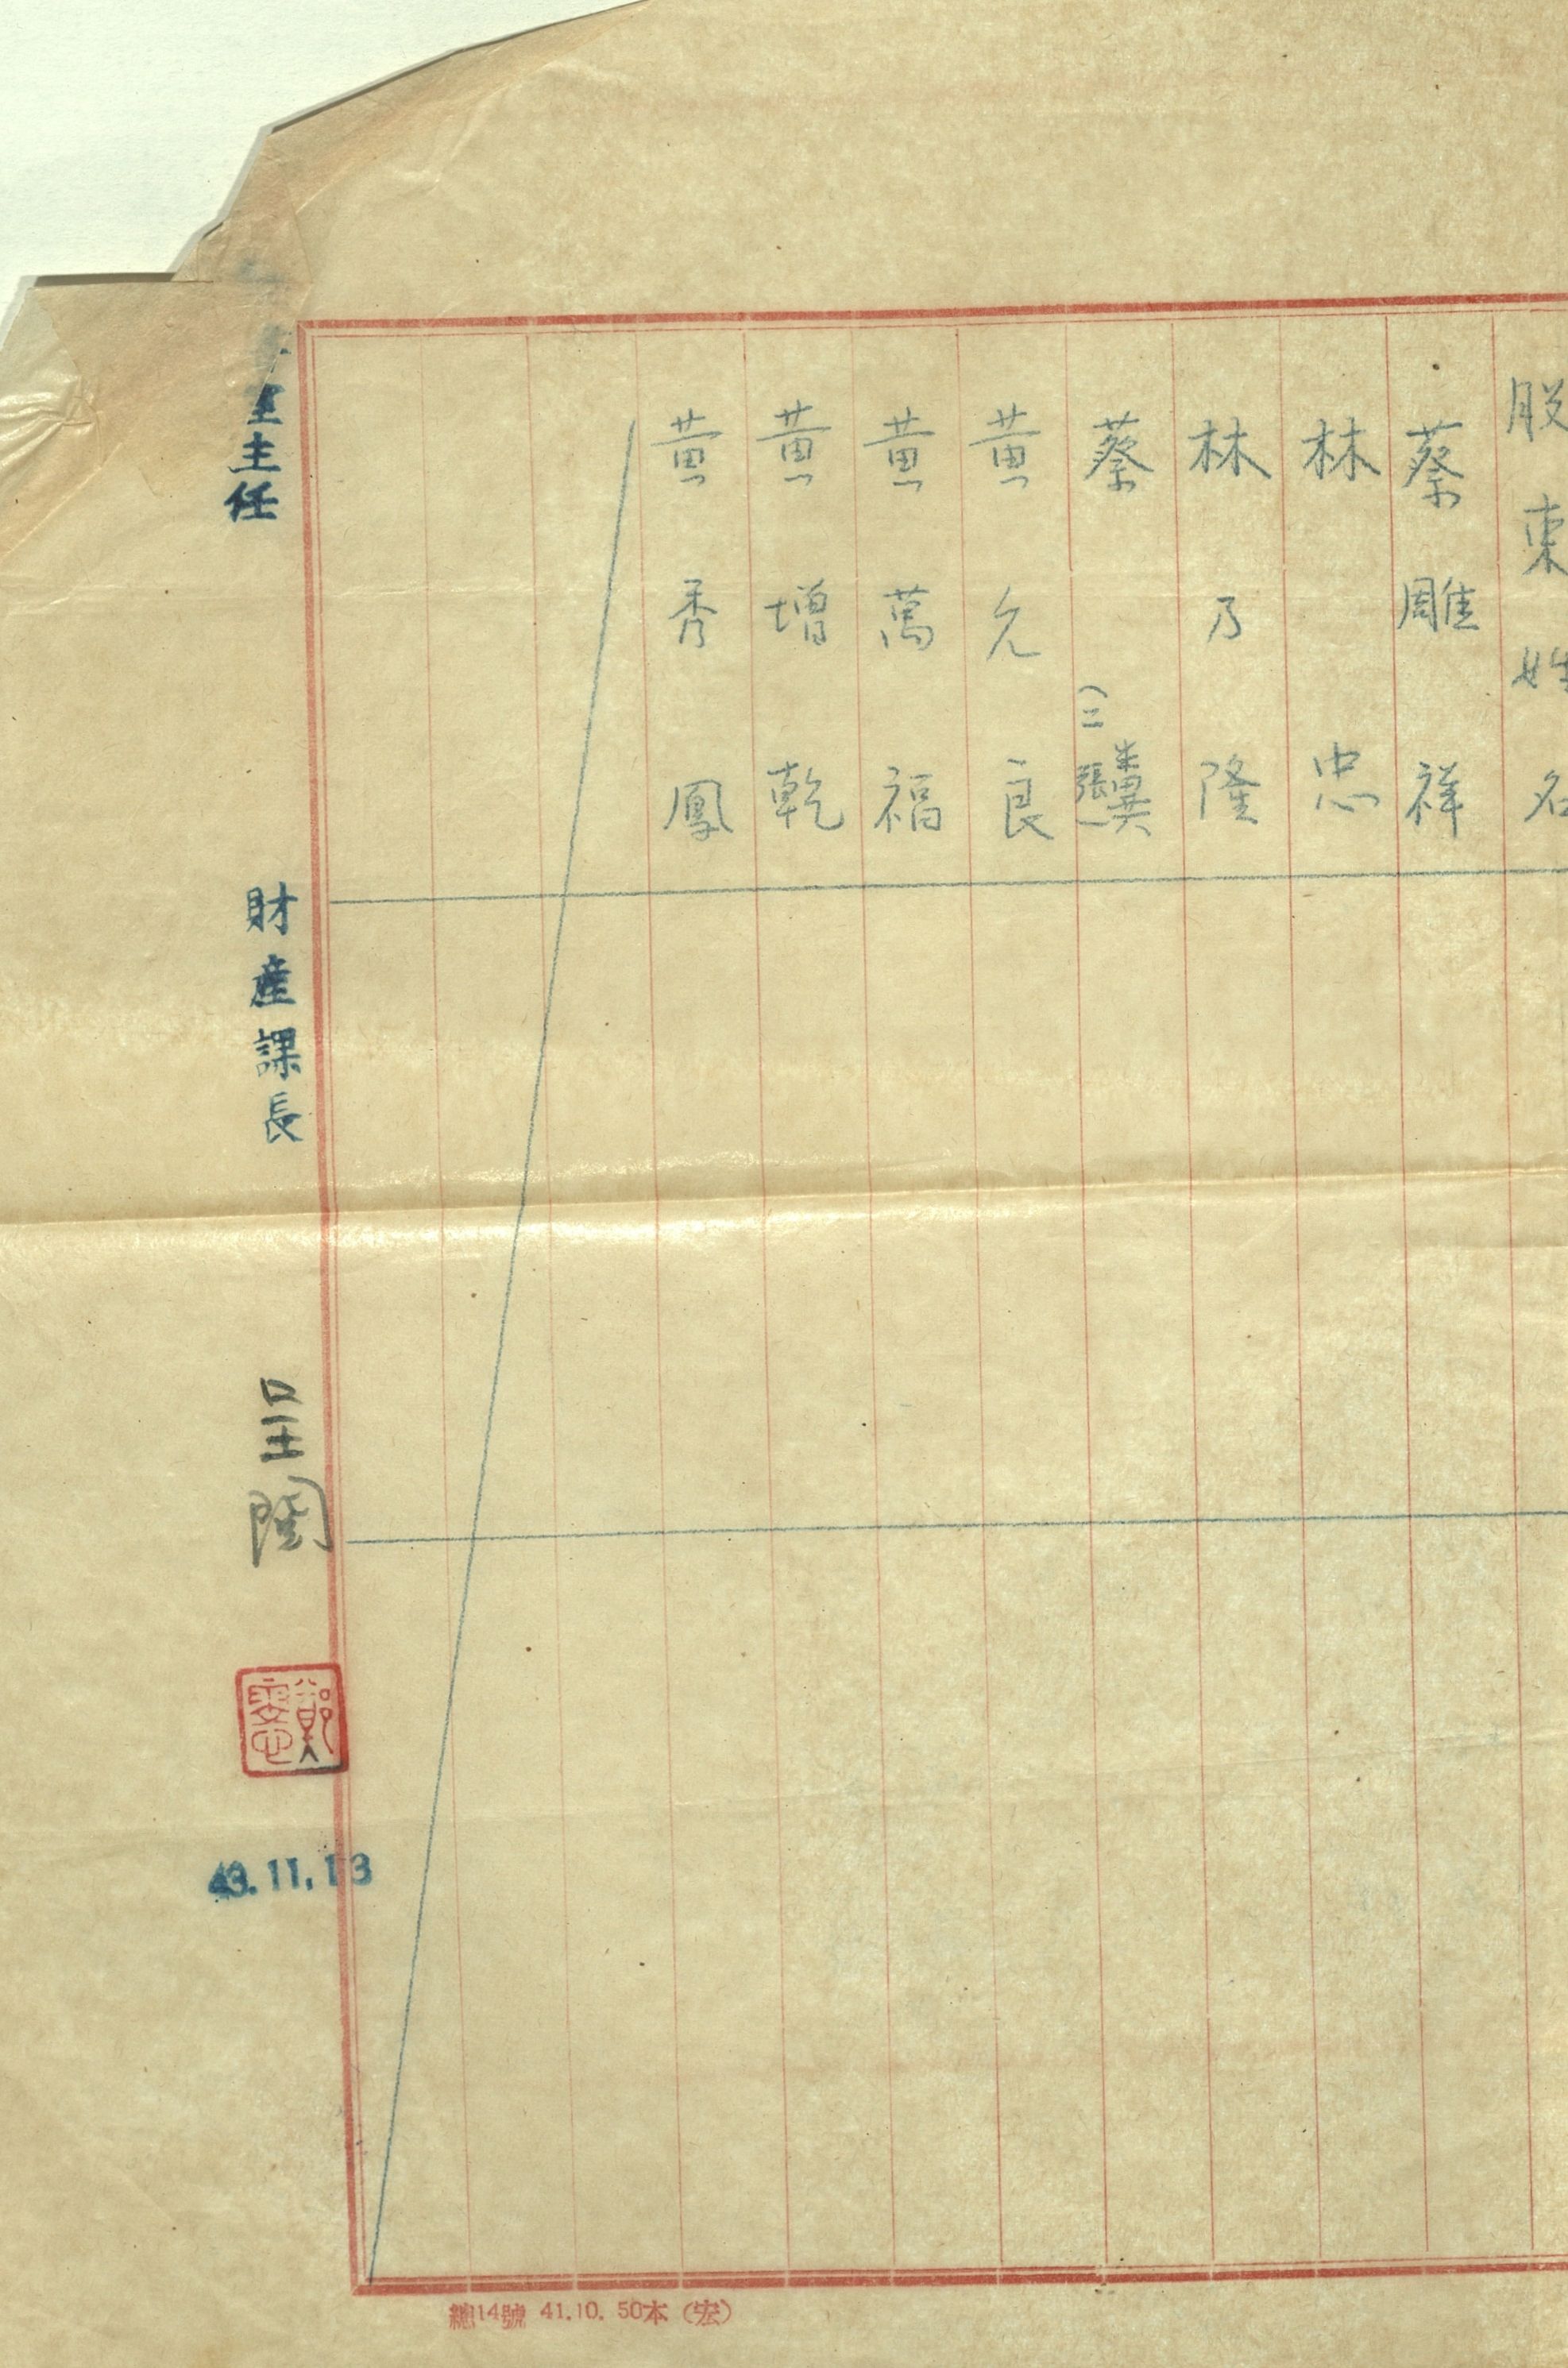 股東姓名
蔡雕祥
林忠
林乃隆
蔡糞（二張）
黃允良
黃萬福
黃增乾
黃秀鳳
室主任
財產課長
呈閱
43.11.13
總14號 41.10. 50本（宏）